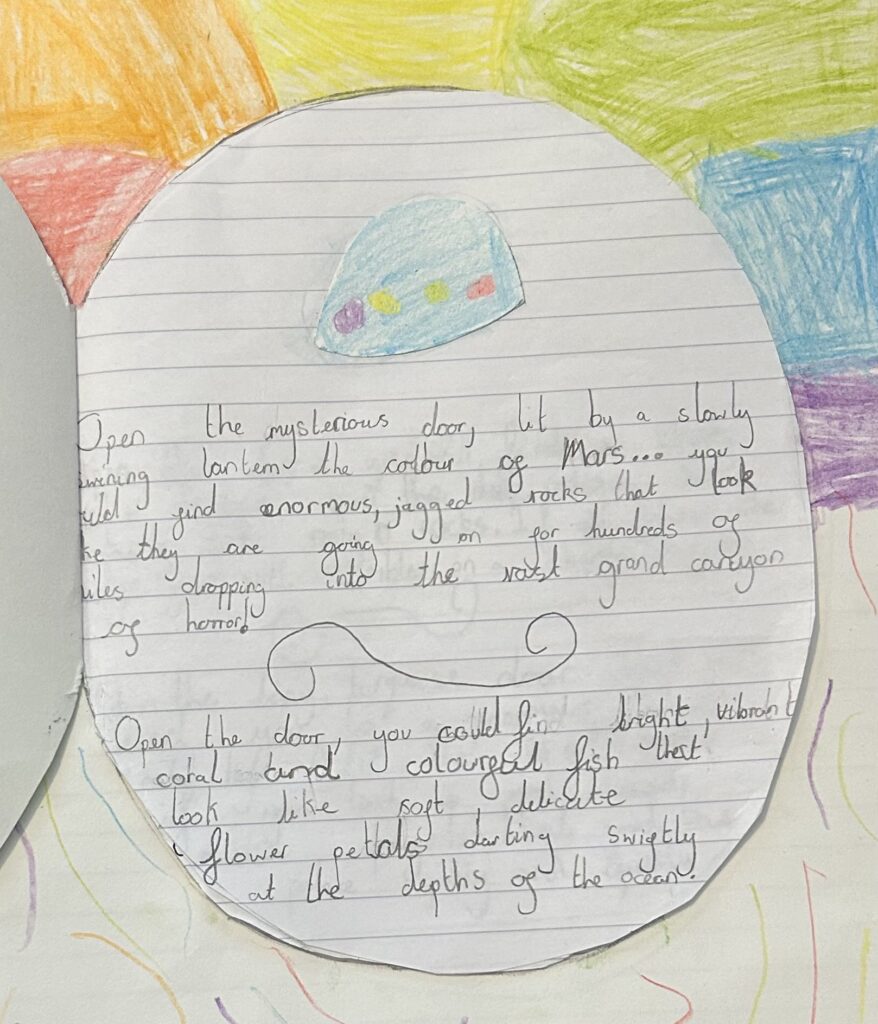 Open the mysterious door, lit by a slowly
lantern the colour of Mars... you
uld find enormous, jagged rocks that look
ke they are going on for hundreds of
iles dropping into the vast grand canyon
of horror!
Open the door, you could fin bright, vibrant
coral and colourful fish that
look like soft, delicate
flower petlals darting swiftly
at the depths of the ocean.